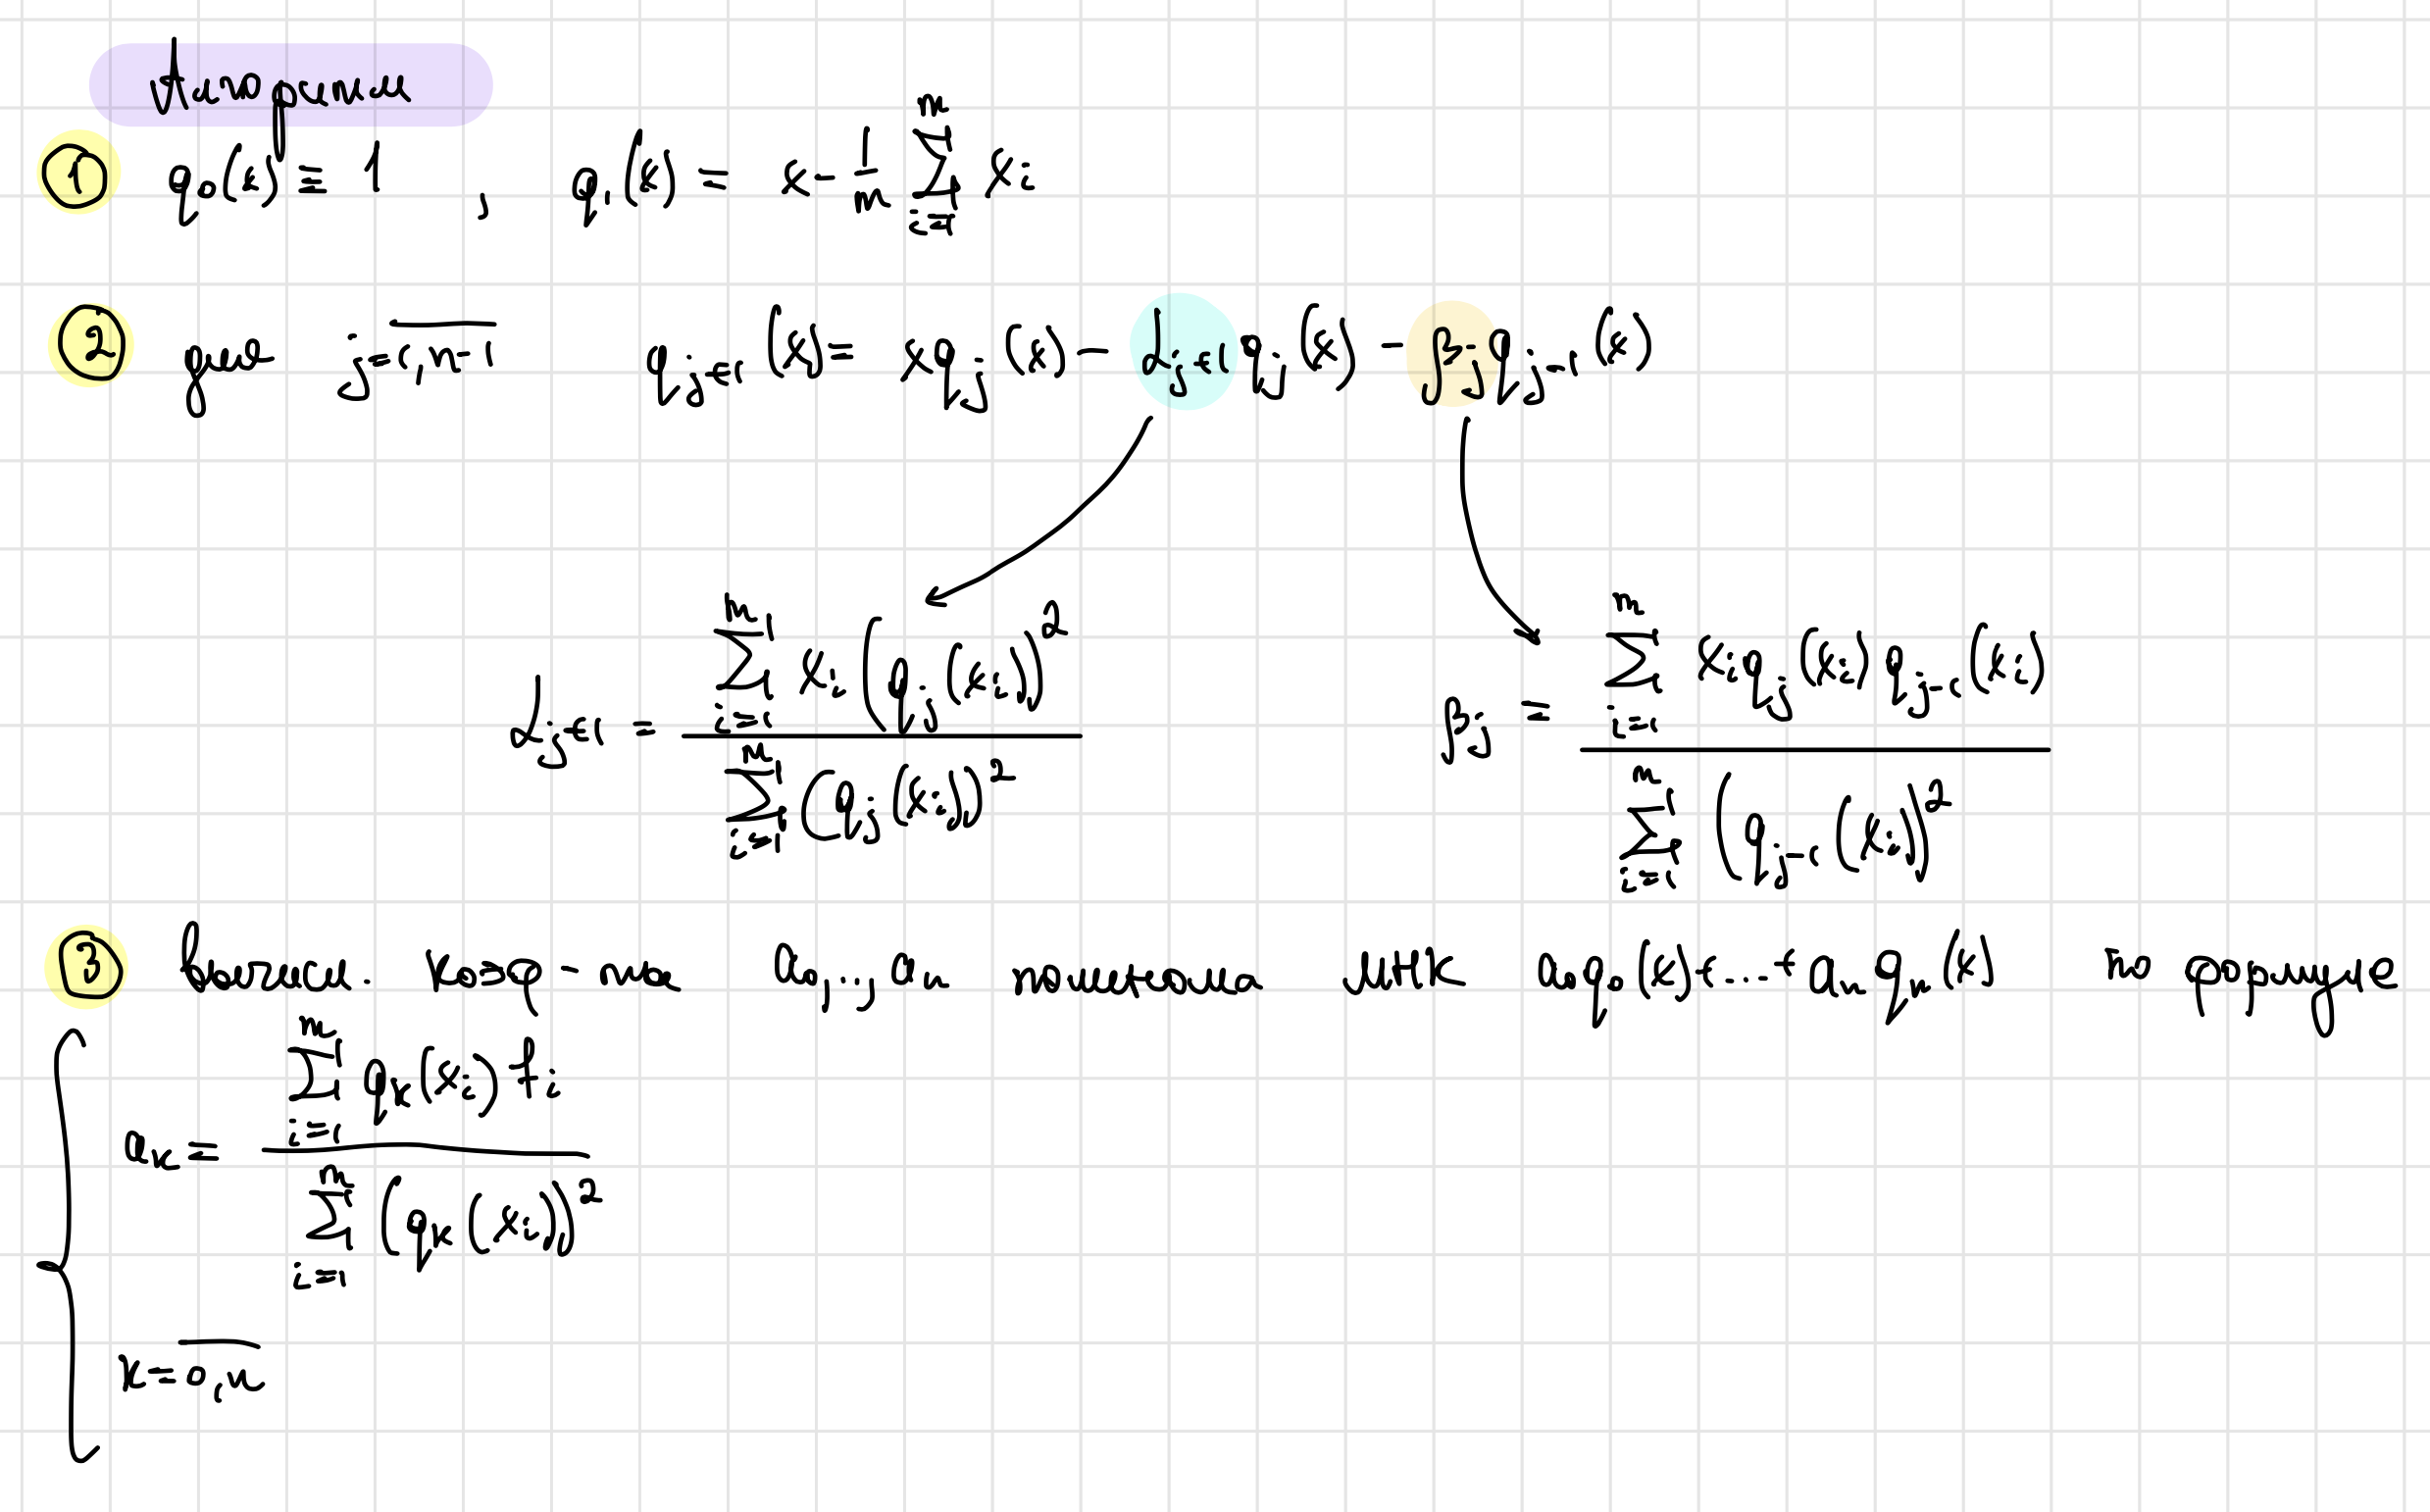 Алгоритм
① q₀(x) ≡ 1 , q₁(x) = x - 1/m ∑_{i=1}^{m} xᵢ
② для j=1,n-1 q_{j+1}(x) = xq_j(x) - α_{j+1}q_j(x) - β_jq_{j-1}(x)
α_{j+1} = ∑_{i=1}^{m} xᵢ(q_j(xᵢ))² / ∑_{i=1}^{m} (q_j(xᵢ))² β_j = ∑_{i=1}^{m} xᵢq_j(xᵢ)q_{j-1}(xᵢ) / ∑_{i=1}^{m} (q_{j-1}(xᵢ))²
③ вычисл. коэф-ты a₀,..,aₙ многочлена МНК a₀q₀(x)+...+aₙqₙ(x) по формуле
a_k = ∑_{i=1}^{m} q_k(xᵢ)fᵢ / ∑_{i=1}^{m} (q_k(xᵢ))²
k=0,n